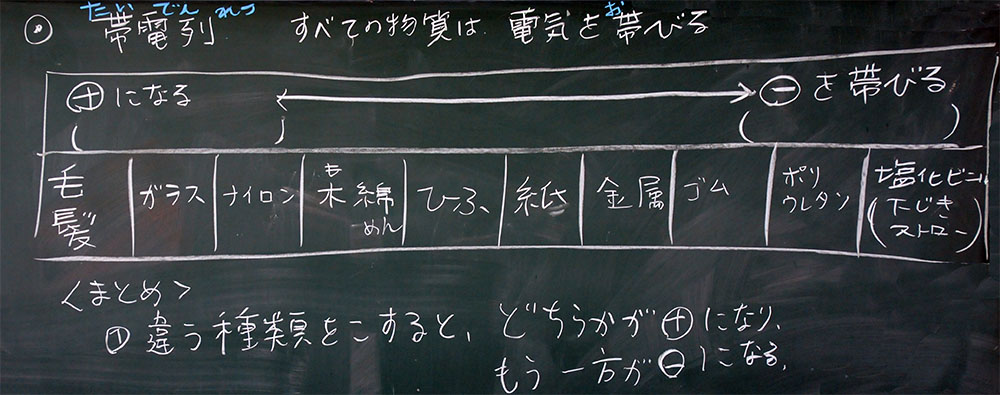 たいでんれつ
◎ 帯電列 すべての物質は 電気を帯びる
お
⊕になる ←→ ⊖を帯びる
( ) ( )
毛髪 ガラス ナイロン 木綿 ひふ 紙 金属 ゴム ポリウレタン 塩化ビニル(下じきストロー)
も めん
<まとめ>
① 違う種類をこすると、どちらかが⊕になり、
もう一方が⊖になる。